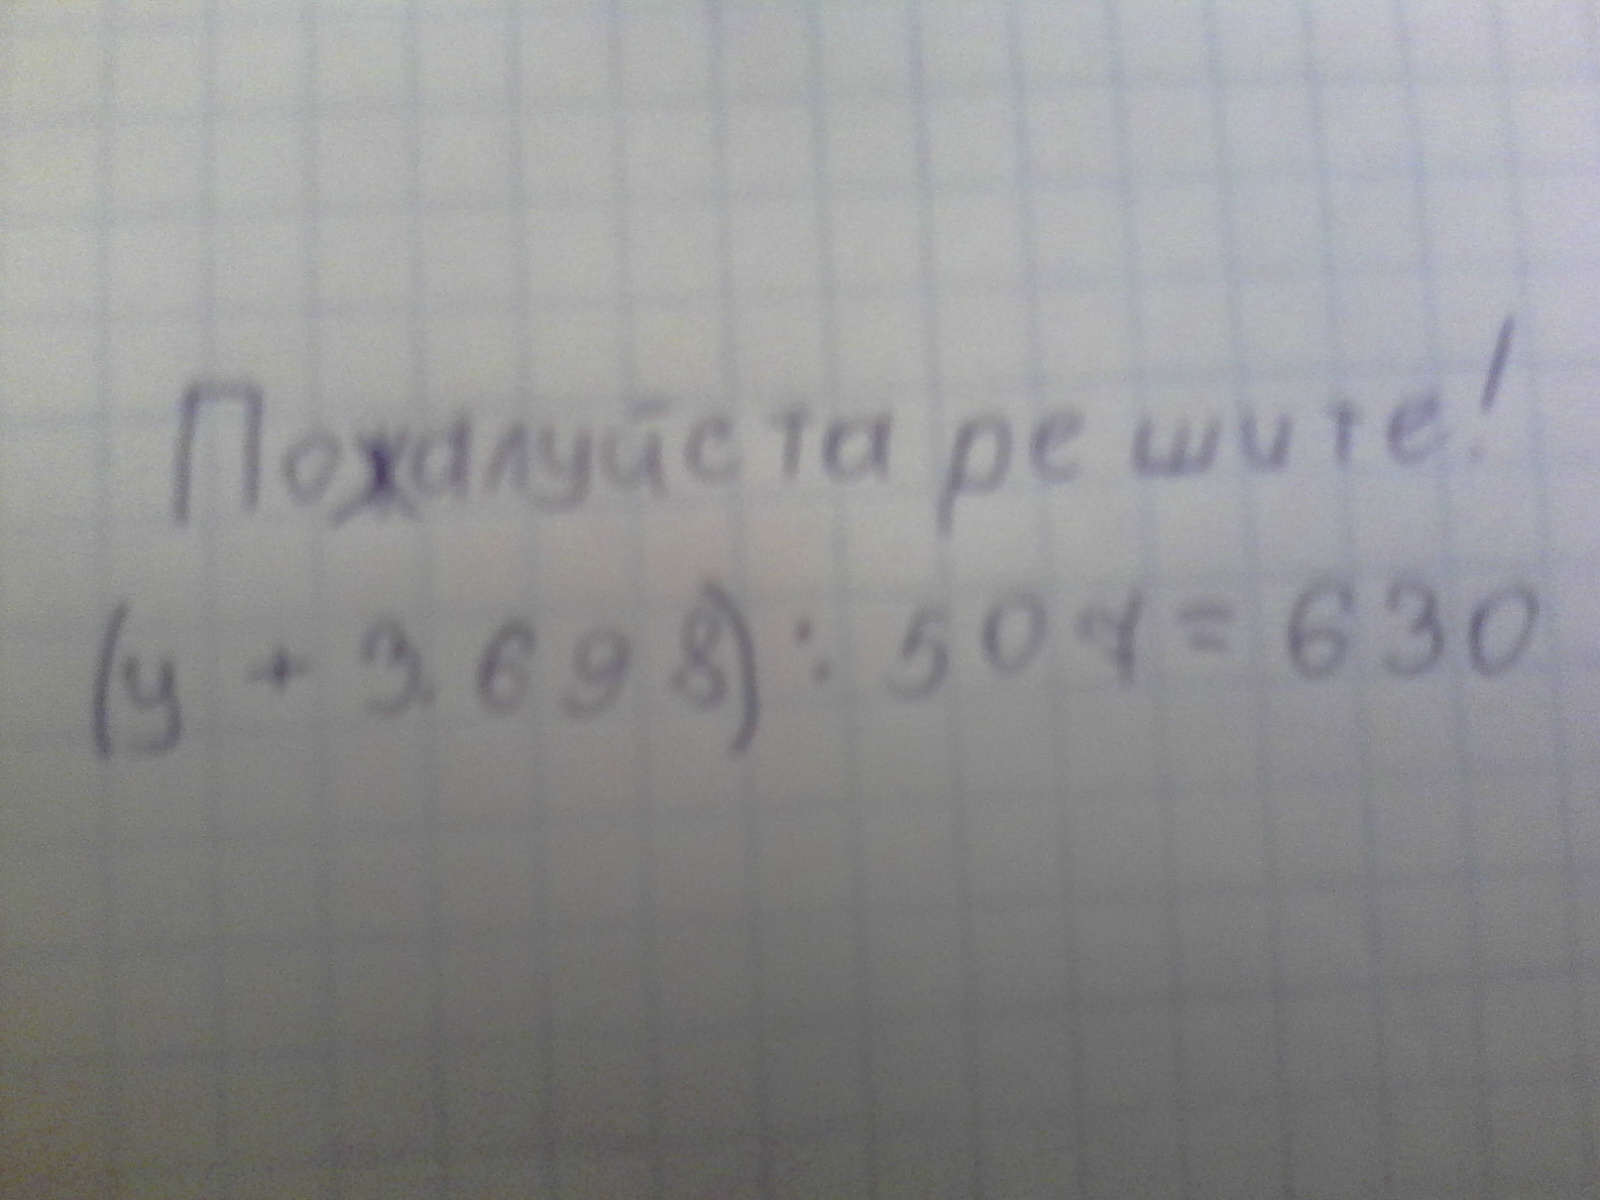 Пожалуйста решите!
(у + 3698) : 504 = 630